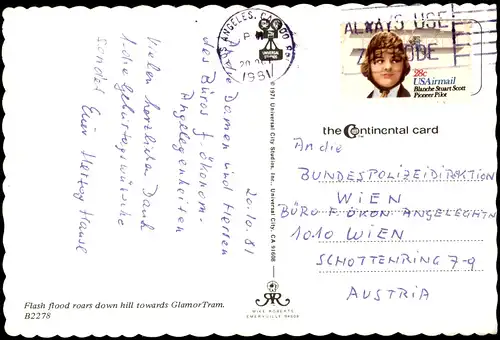 LOS ANGELES, CA
PM
20 OCT
1981
ALWAYS USE
ZIP CODE
28c
USAirmail
Blanche Stuart Scott
Pioneer Pilot
the Continental card
20.10.81
An die Damen und Herren
des Büros f. ökonom.
Angelegenheiten
Vielen herzlichen Dank
f. die Geburtstagswünsche
sendet Euer Herzog Hause
© 1971 Universal City Studios, Inc., Universal City, CA 91608
An die
BUNDESPOLIZEIDIREKTION
WIEN
BÜRO F. ÖKON. ANGELEGHTN
1010 WIEN
SCHOTTENRING 7-9
AUSTRIA
Flash flood roars down hill towards GlamorTram.
B2278
MIKE ROBERTS
EMERYVILLE 94608